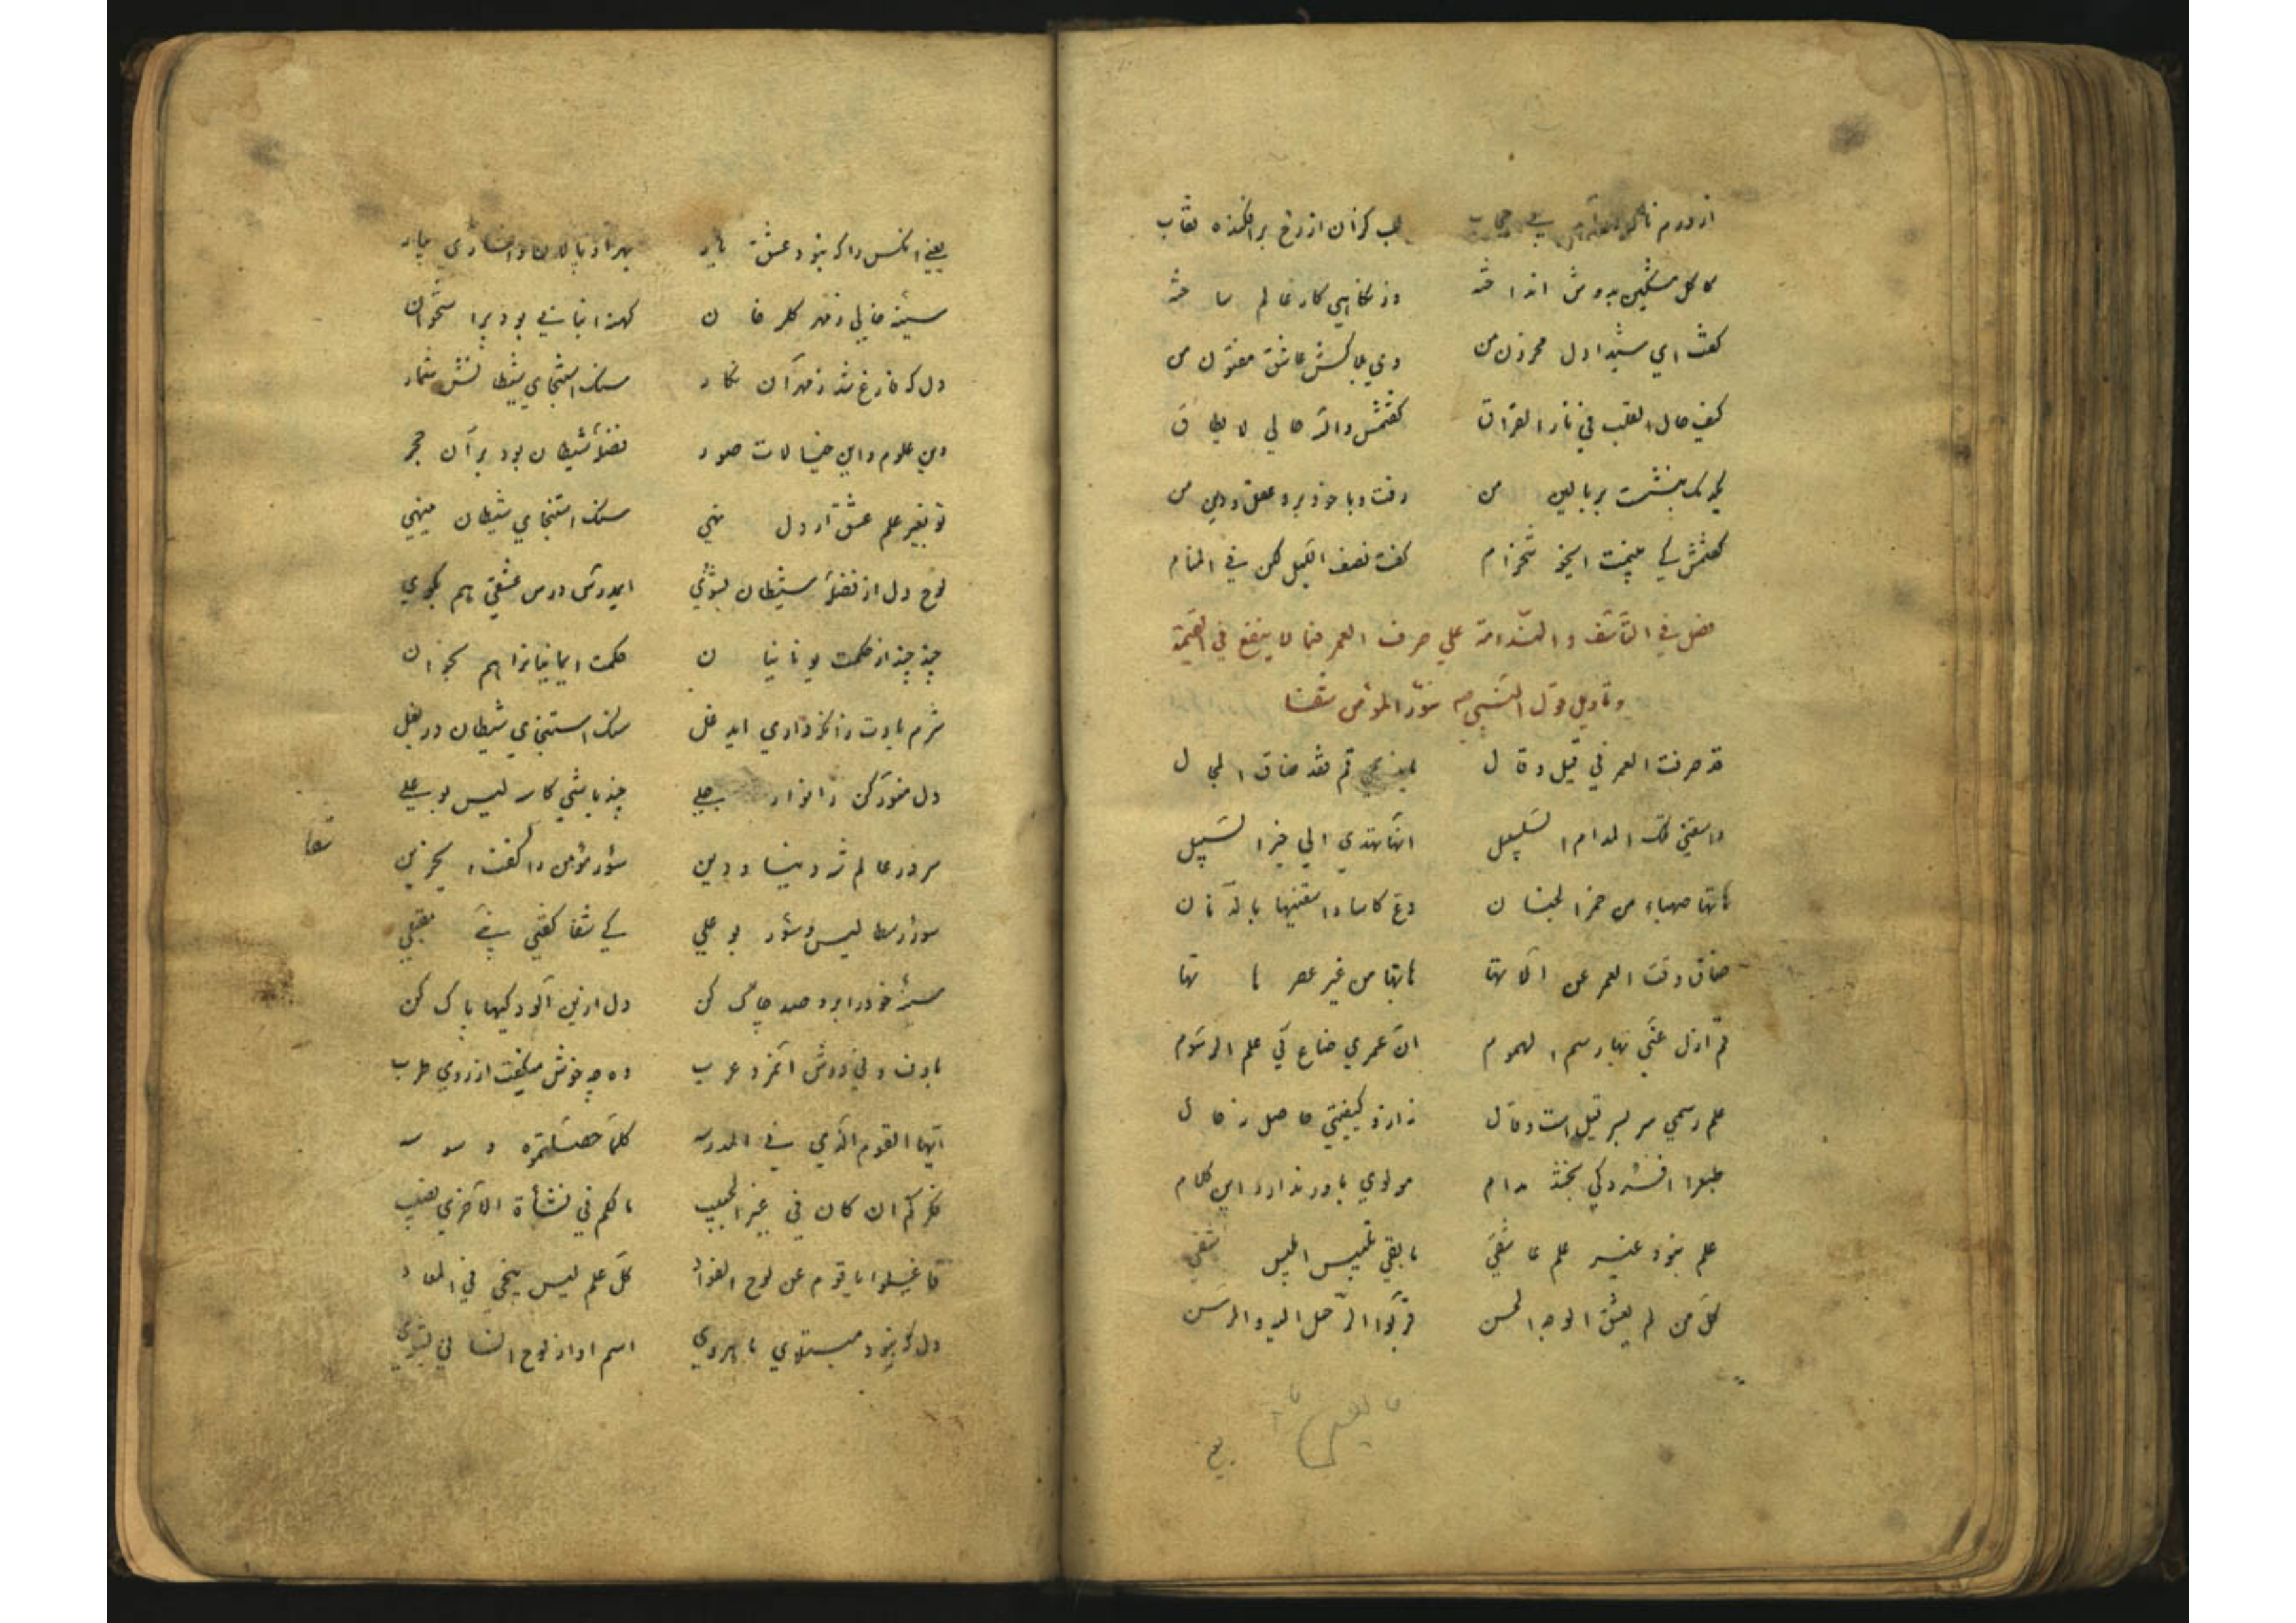 از درم ناگه درآمد بی حجاب لب گزان از رخ برافکنده نقاب
کاکل مشکین بدوش انداخته وز نگاهی کار عالم ساخته
گفت ای شیدا دل محزون من وی بلاکش عاشق مفتون من
کیف حال القلب فی نار الفراق گفتمش والله حالی لا یطاق
یکدمک بنشست بر بالین من رفت و با خود برد عقل و دین من
گفتمش کی بینمت ای خوشخرام گفت نصف اللیل لکن فی المنام
فصل فی التأسف و الندامة علی صرف العمر فیما لا ینفع فی القیمة
و تاویل قول النبی ص سؤر المؤمن شفا
قد صرفت العمر فی قیل و قال یا ندیمی قم فقد ضاق المجال
واسقنی تلک المدام السلسبیل انها تهدی الی خیر السبیل
هاتها صهباء من خمر الجنان دع کاسا واسقنیها بالدنان
ضاق وقت العمر عن آلاتها هاتها من غیر عصر هاتها
قم ازل عنی بها رسم الهموم ان عمری ضاع فی علم الرسوم
علم رسمی سر بسر قیل است و قال نه ازو کیفیتی حاصل نه حال
طبع را افسردگی بخشد مدام مولوی باور ندارد این کلام
علم نبود غیر علم عاشقی ما بقی تلبیس ابلیس شقی
کل من لم یعشق الوجه الحسن قربوا الرحل الیه والرسن
ما بقی
یعنی آنکس را که نبود عشق یار بهر او پالان و افساری بیار
سینه خالی ز مهر گلرخان کهنه انبانی بود پر استخوان
دل که فارغ شد ز مهر آن نگار سنک استنجای شیطانش شمار
وین علوم و این خیالات صور فضلهٔ شیطان بود بر آن حجر
تو بغیر علم عشق ار دل نهی سنک استنجای شیطان میدهی
لوح دل از فضلهٔ شیطان بشوی ای مدرس درس عشقی هم بگوی
چند چند از حکمت یونانیان حکمت ایمانیان را هم بخوان
شرم بادت زانکه داری ای دغل سنک استنجای شیطان در بغل
دل منور کن ز انوار جلی چند باشی کاسه لیس بو علی
سرور عالم شه دنیا و دین سؤر مؤمن را شفا گفت ای حزین
سؤر رسطالیس و سؤر بو علی کی شفا گفتی نبی منجلی
سینهٔ خود را برو صد چاک کن دل ازین آلودگیها پاک کن
با دف و نی دوش آن مرد عرب وه چه خوش میگفت از روی طرب
ایها القوم الذی فی المدرسه کلما حصلتموه وسوسه
فکرکم ان کان فی غیر الحبیب ما لکم فی نشأة الاخری نصیب
فاغسلوا یا قوم عن لوح الفؤاد کل علم لیس ینجی فی المعاد
دل که نبود مبتلای ماهروی اسم او از لوح انسانی بشوی
شفا